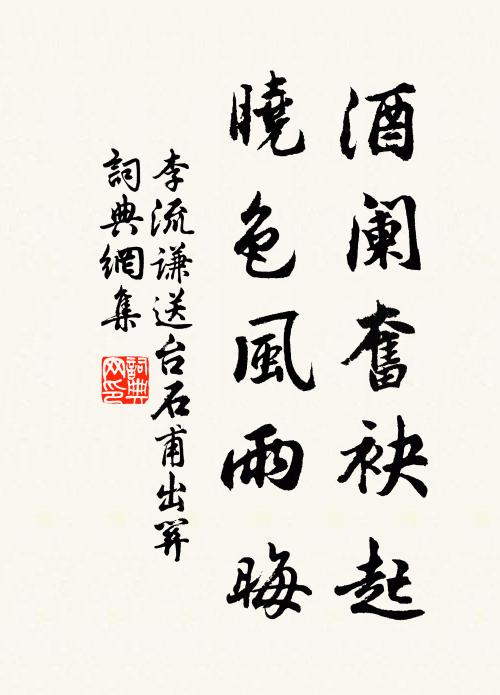 酒阑奮袂起
曉色風雨晦
李流謙送台石甫出關
詞典網集
詞典网印